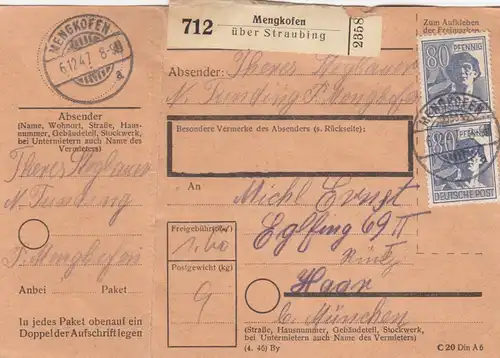 712
Mengkofen
über Straubing
23583
Zum Aufkleben
der Freimarken
MENGKOFEN
6.12.47. 8-9
a
Absender:
N. Tunding P. Mengkofen
80 PFENNIG
MENGKOFEN
80 PFENNIG
DEUTSCHE POST
Absender
(Name, Wohnort, Straße, Haus-
nummer, Gebäudeteil, Stockwerk,
bei Untermietern auch Name des
Vermieters)
N. Tunding
P. Mengkofen
Besondere Vermerke des Absenders (s. Rückseite):
An
Michl Ernst
Eglfing 69 II
Haar
b. München
Freigebühr
1.60
Postgewicht (kg)
9
Anbei Paket
In jedes Paket obenauf ein
Doppel der Aufschrift legen
(Straße, Hausnummer, Gebäudeteil, Stockwerk,
bei Untermietern auch Name des Vermieters)
(4. 46) By
C 20 Din A 6